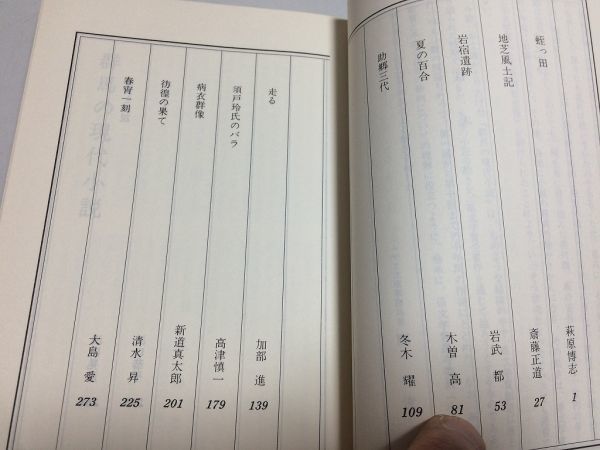 蛭っ田 萩原博志 1
地芝風土記 斎藤正道 27
岩宿遺跡 岩武 都 53
夏の百合 木曽 高 81
助郷三代 冬木 耀 109
走る 加部 進 139
須戸玲氏のバラ 高津慎一 179
病衣群像 新道真太郎 201
彷徨の果て 清水 昇 225
春宵一刻 大島 愛 273